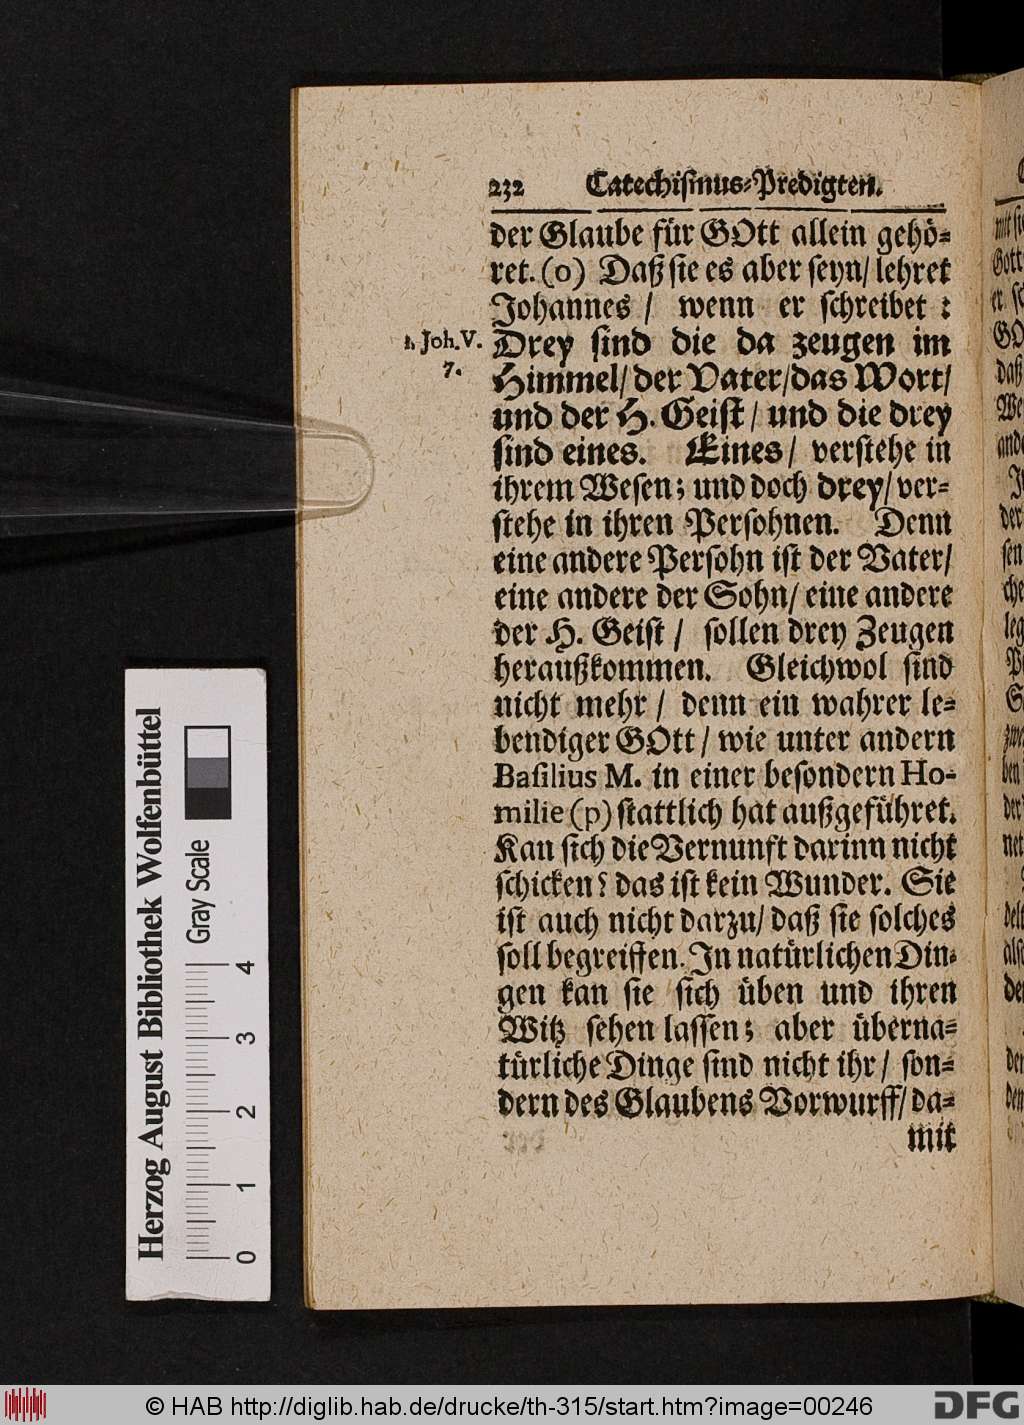 232 Catechismus-Predigten.
der Glaube für GOtt allein gehö-
ret. (o) Daß sie es aber seyn/ lehret
Johannes / wenn er schreibet :
1. Joh. V.
7.
Drey sind die da zeugen im
Himmel/ der Vater/ das Wort/
und der H. Geist / und die drey
sind eines. Eines / verstehe in
ihrem Wesen; und doch drey/ ver-
stehe in ihren Persohnen. Denn
eine andere Persohn ist der Vater/
eine andere der Sohn/ eine andere
der H. Geist / sollen drey Zeugen
heraußkommen. Gleichwol sind
nicht mehr / denn ein wahrer le-
bendiger GOtt / wie unter andern
Basilius M. in einer besondern Ho-
milie (p) stattlich hat außgeführet.
Kan sich die Vernunft darinn nicht
schicken? das ist kein Wunder. Sie
ist auch nicht darzu/ daß sie solches
soll begreiffen. In natürlichen Din-
gen kan sie sich üben und ihren
Witz sehen lassen; aber überna-
türliche Dinge sind nicht ihr / son-
dern des Glaubens Vorwurff/ da-
mit
Herzog August Bibliothek Wolfenbüttel
Gray Scale
0 1 2 3 4
© HAB http://diglib.hab.de/drucke/th-315/start.htm?image=00246
DFG